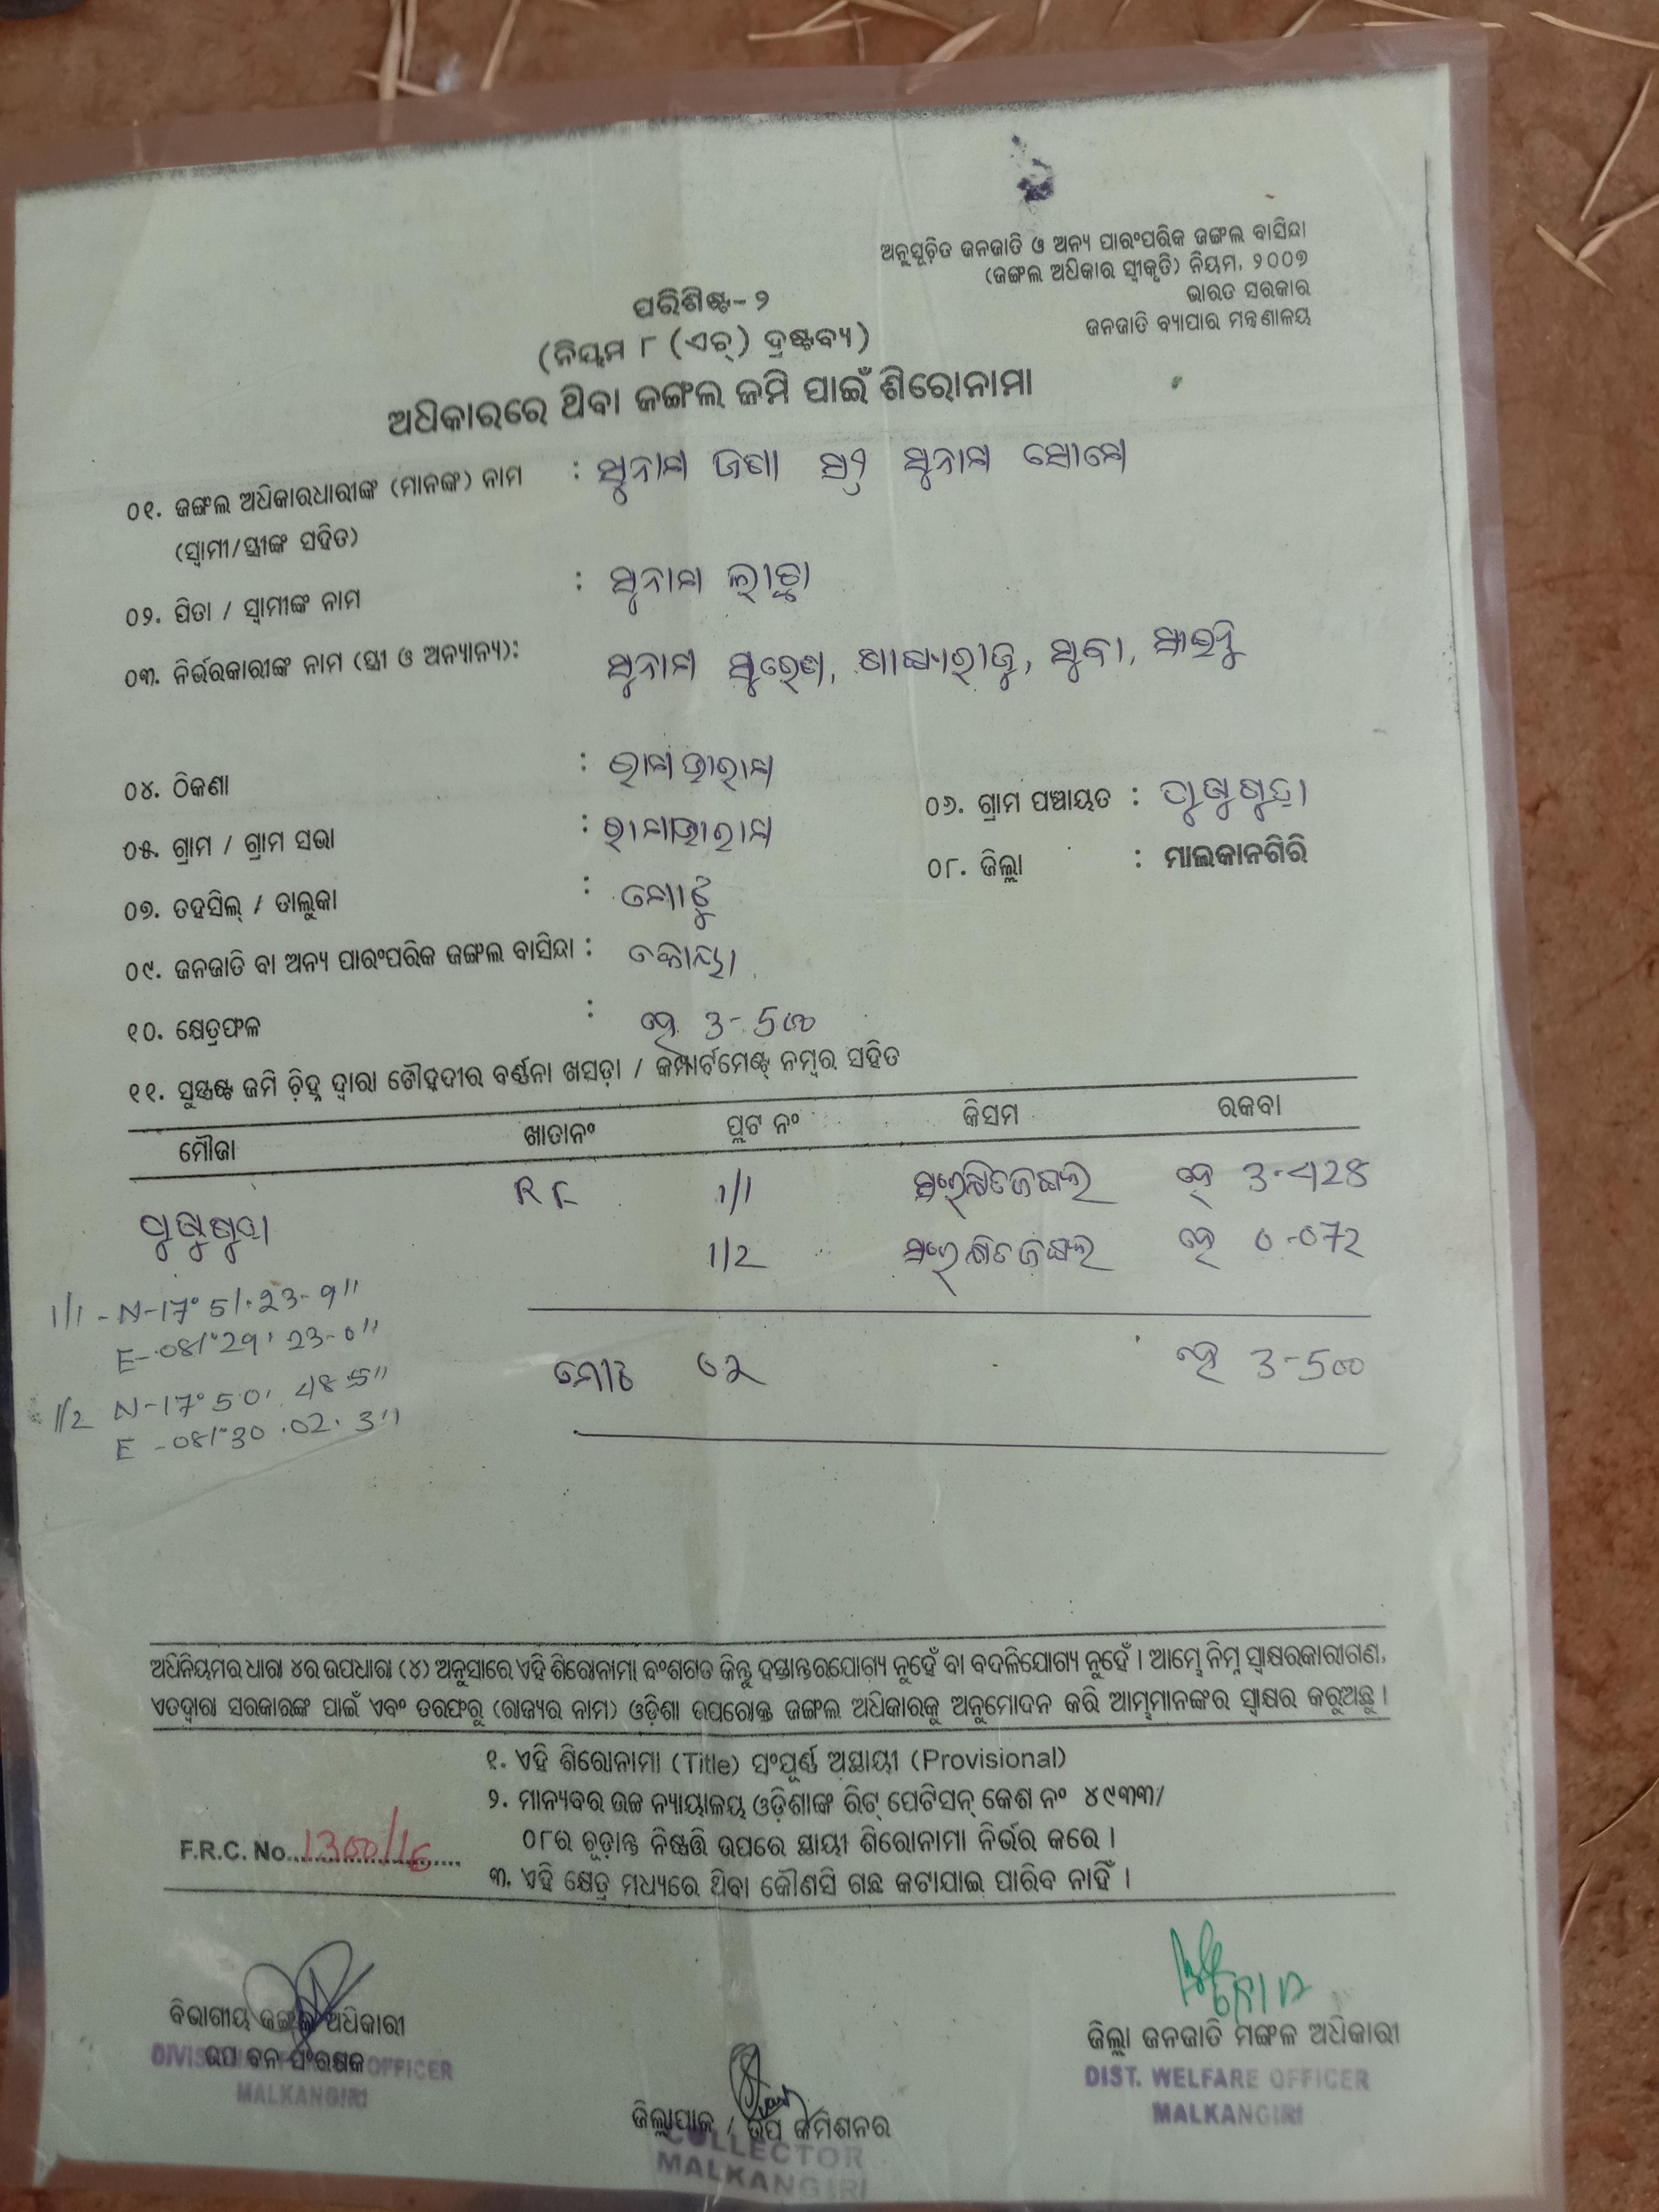 ଅନୁସୂଚିତ ଜନଜାତି ଓ ଅନ୍ୟ ପାରଂପରିକ ଜଙ୍ଗଲ ବାସିନ୍ଦା
(ଜଙ୍ଗଲ ଅଧିକାର ସ୍ୱୀକୃତି) ନିୟମ, ୨୦୦୭
ଭାରତ ସରକାର
ଜନଜାତି ବ୍ୟାପାର ମନ୍ତ୍ରଣାଳୟ
ପରିଶିଷ୍ଟ- ୨
(ନିୟମ ୮ (ଏଚ୍) ଦ୍ରଷ୍ଟବ୍ୟ)
ଅଧିକାରରେ ଥିବା ଜଙ୍ଗଲ ଜମି ପାଇଁ ଶିରୋନାମା
୦୧. ଜଙ୍ଗଲ ଅଧିକାରଧାରୀଙ୍କ (ମାନଙ୍କ) ନାମ :
(ସ୍ୱାମୀ/ସ୍ତ୍ରୀଙ୍କ ସହିତ)
୦୨. ପିତା / ସ୍ୱାମୀଙ୍କ ନାମ :
୦୩. ନିର୍ଭରକାରୀଙ୍କ ନାମ (ସ୍ତ୍ରୀ ଓ ଅନ୍ୟାନ୍ୟ):
୦୪. ଠିକଣା :
୦୫. ଗ୍ରାମ / ଗ୍ରାମ ସଭା : ୦୬. ଗ୍ରାମ ପଞ୍ଚାୟତ :
୦୭. ତହସିଲ୍ / ତାଲୁକା : ମୋଟୁ ୦୮. ଜିଲ୍ଲା : ମାଲକାନଗିରି
୦୯. ଜନଜାତି ବା ଅନ୍ୟ ପାରଂପରିକ ଜଙ୍ଗଲ ବାସିନ୍ଦା : କୋୟା
୧୦. କ୍ଷେତ୍ରଫଳ : ହେ 3-500
୧୧. ସୁସ୍ପଷ୍ଟ ଜମି ଚିହ୍ନ ଦ୍ୱାରା ଚୌହଦୀର ବର୍ଣ୍ଣନା ଖସଡ଼ା / କମ୍ପାର୍ଟମେଣ୍ଟ୍ ନମ୍ବର ସହିତ
ମୌଜା ଖାତାନଂ ପ୍ଲଟ ନଂ କିସମ ରକବା
RF 1/1 ସଂରକ୍ଷିତ ଜଙ୍ଗଲ ହେ 3.428
1/2 ସଂରକ୍ଷିତ ଜଙ୍ଗଲ ହେ 0-072
1/1 - N-17° 51. 23- 9"
E- 081° 29' 23-0"
1/2 N-17° 50' 48.5"
E -081° 30 .02. 3"
ମୋଟ ୦୨ ହେ 3-500
ଅଧିନିୟମର ଧାରା ୪ର ଉପଧାରା (୪) ଅନୁସାରେ ଏହି ଶିରୋନାମା ବଂଶଗତ କିନ୍ତୁ ହସ୍ତାନ୍ତରଯୋଗ୍ୟ ନୁହେଁ ବା ବଦଳିଯୋଗ୍ୟ ନୁହେଁ । ଆମ୍ଭେ ନିମ୍ନ ସ୍ୱାକ୍ଷରକାରୀଗଣ,
ଏତଦ୍ୱାରା ସରକାରଙ୍କ ପାଇଁ ଏବଂ ତରଫରୁ (ରାଜ୍ୟର ନାମ) ଓଡ଼ିଶା ଉପରୋକ୍ତ ଜଙ୍ଗଲ ଅଧିକାରକୁ ଅନୁମୋଦନ କରି ଆମ୍ଭମାନଙ୍କର ସ୍ୱାକ୍ଷର କରୁଅଛୁ ।
୧. ଏହି ଶିରୋନାମା (Title) ସଂପୂର୍ଣ୍ଣ ଅସ୍ଥାୟୀ (Provisional)
୨. ମାନ୍ୟବର ଉଚ୍ଚ ନ୍ୟାୟାଳୟ ଓଡ଼ିଶାଙ୍କ ରିଟ୍ ପେଟିସନ୍ କେଶ ନଂ ୪୯୩୩/
୦୮ର ଚୂଡ଼ାନ୍ତ ନିଷ୍ପତ୍ତି ଉପରେ ସ୍ଥାୟୀ ଶିରୋନାମା ନିର୍ଭର କରେ ।
F.R.C. No. 1300/16
୩. ଏହି କ୍ଷେତ୍ର ମଧ୍ୟରେ ଥିବା କୌଣସି ଗଛ କଟାଯାଇ ପାରିବ ନାହିଁ ।
ବିଭାଗୀୟ ଜଙ୍ଗଲ ଅଧିକାରୀ
ଉପ ବନ ସଂରକ୍ଷକ
OFFICER
MALKANGIRI
ଜିଲ୍ଲାପାଳ / ଉପ କମିଶନର
COLLECTOR
MALKANGIRI
ଜିଲ୍ଲା ଜନଜାତି ମଙ୍ଗଳ ଅଧିକାରୀ
DIST. WELFARE OFFICER
MALKANGIRI